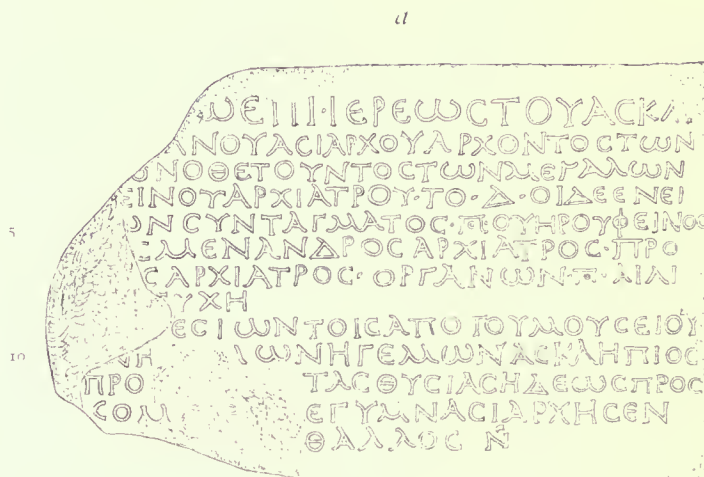 a
ΩΕΙΙΙ·ΙΕΡΕΩϹΤΟΥΑϹΚΛ
ΑΝΟΥΑϹΙΑΡΧΟΥΑΡΧΟΝΤΟϹΤΩΝ
ΩΝΟΘΕΤΟΥΝΤΟϹΤΩΝΜΕΓΑΛΩΝ
ΕΙΝΟΥΑΡΧΙΑΤΡΟΥ·ΤΟ·Δ·ΟΙΔΕΕΝΕΙ
5 ΩΝϹΥΝΤΑΓΜΑΤΟϹ·Π·ΟΥΗΡΟΥΦΕΙΝΟϹ
ΜΕΝΑΝΔΡΟϹΑΡΧΙΑΤΡΟϹ·ΠΡΟ
ϹΑΡΧΙΑΤΡΟϹ·ΟΡΓΑΝΩΝ·Π·ΑΙΛΙ
ΥΧΗ
ΕϹΙΩΝΤΟΙϹΑΠΟΤΟΥΜΟΥϹΕΙΟΥ
10 ΝΗ ΙΩΝΗΓΕΜΩΝΑϹΚΛΗΠΙΟϹ
ΠΡΟ ΤΑϹΘΥϹΙΑϹΗΔΕΩϹΠΡΟϹ
ϹΟΜ ΕΓΥΜΝΑϹΙΑΡΧΗϹΕΝ
ΘΑΛΛΟϹ Ν